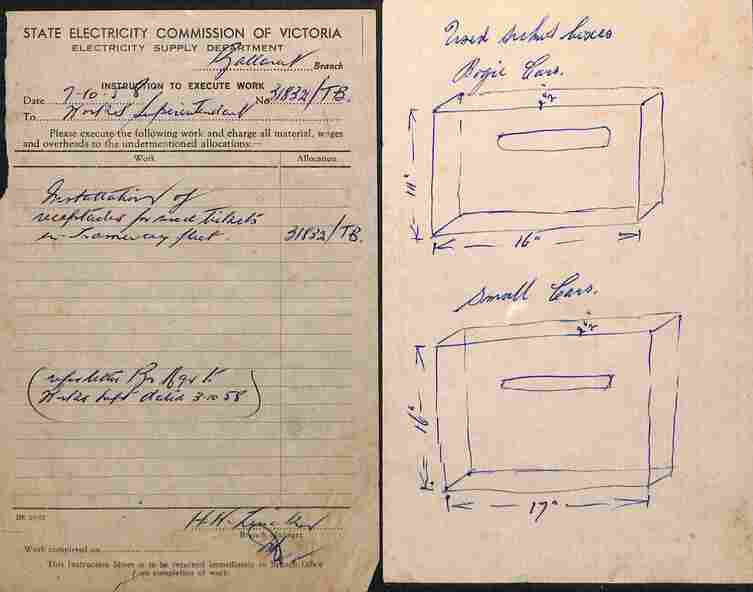 STATE ELECTRICITY COMMISSION OF VICTORIA
ELECTRICITY SUPPLY DEPARTMENT
Ballarat Branch
INSTRUCTION TO EXECUTE WORK
Date 7-10-58 No 31832/TB.
To Works Superintendent
Please execute the following work and charge all material, wages
and overheads to the undermentioned allocations:—
Work Allocation
Installation of
receptacles for used tickets
in tramway fleet. 31832/TB.
(refer letter Br Mgr to
Works Supt dated 3-10-58)
Branch Manager
Work completed on
This Instruction Sheet is to be returned immediately to Branch Office
on completion of work.
Used ticket boxes
Bogie Cars.
2"
16"
Small Cars.
2"
16"
17"